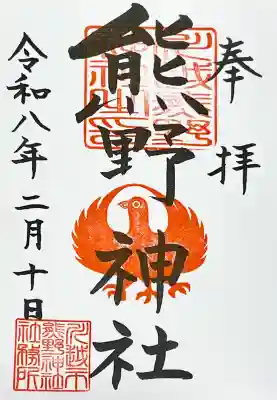 奉拝
熊野神社
令和八年二月十日
川越市
熊野神社
社務所